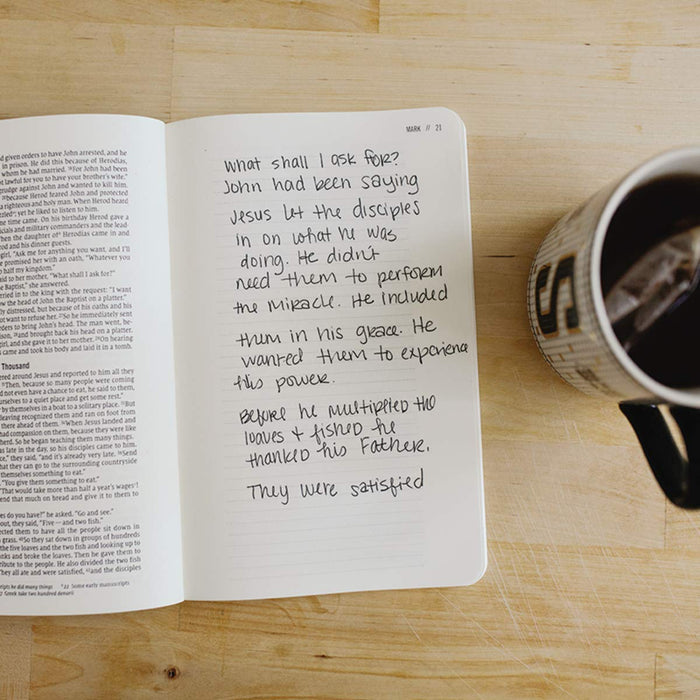 d given orders to have John arrested, and he
in prison. He did this because of Herodias,
whom he had married. 18For John had been
t lawful for you to have your brother's wife."
grudge against John and wanted to kill him,
20because Herod feared John and protected
a righteous and holy man. When Herod heard
zzled; yet he liked to listen to him.
ne time came. On his birthday Herod gave a
icials and military commanders and the lead
When the daughter of Herodias came in and
od and his dinner guests.
girl, "Ask me for anything you want, and I'll
e promised her with an oath, "Whatever you
o half my kingdom."
aid to her mother, "What shall I ask for?"
e Baptist," she answered.
rried in to the king with the request: "I want
w the head of John the Baptist on a platter."
ly distressed, but because of his oaths and his
ot want to refuse her. 27So he immediately sent
orders to bring John's head. The man went, be-
rison, 28and brought back his head on a platter.
irl, and she gave it to her mother. 29On hearing
s came and took his body and laid it in a tomb.
Thousand
ered around Jesus and reported to him all they
31Then, because so many people were coming
d not even have a chance to eat, he said to them,
urselves to a quiet place and get some rest."
by themselves in a boat to a solitary place. 33But
leaving recognized them and ran on foot from
there ahead of them. 34When Jesus landed and
had compassion on them, because they were like
herd. So he began teaching them many things.
as late in the day, so his disciples came to him.
ce," they said, "and it's already very late. 36Send
hat they can go to the surrounding countryside
themselves something to eat."
"You give them something to eat."
"That would take more than half a year's wages!
end that much on bread and give it to them to
es do you have?" he asked. "Go and see."
out, they said, "Five — and two fish."
ected them to have all the people sit down in
grass. 40So they sat down in groups of hundreds
the five loaves and the two fish and looking up to
nks and broke the loaves. Then he gave them to
ribute to the people. He also divided the two fish
They all ate and were satisfied, 43and the disciples
ripts he did many things 22 Some early manuscripts
7 Greek take two hundred denarii
MARK // 21
what shall I ask for?
John had been saying
Jesus let the disciples
in on what he was
doing. He didn't
need them to perform
the miracle. He included
them in his grace. He
wanted them to experience
his power.
Before he multiplied the
loaves + fished he
thanked his Father.
They were satisfied
S